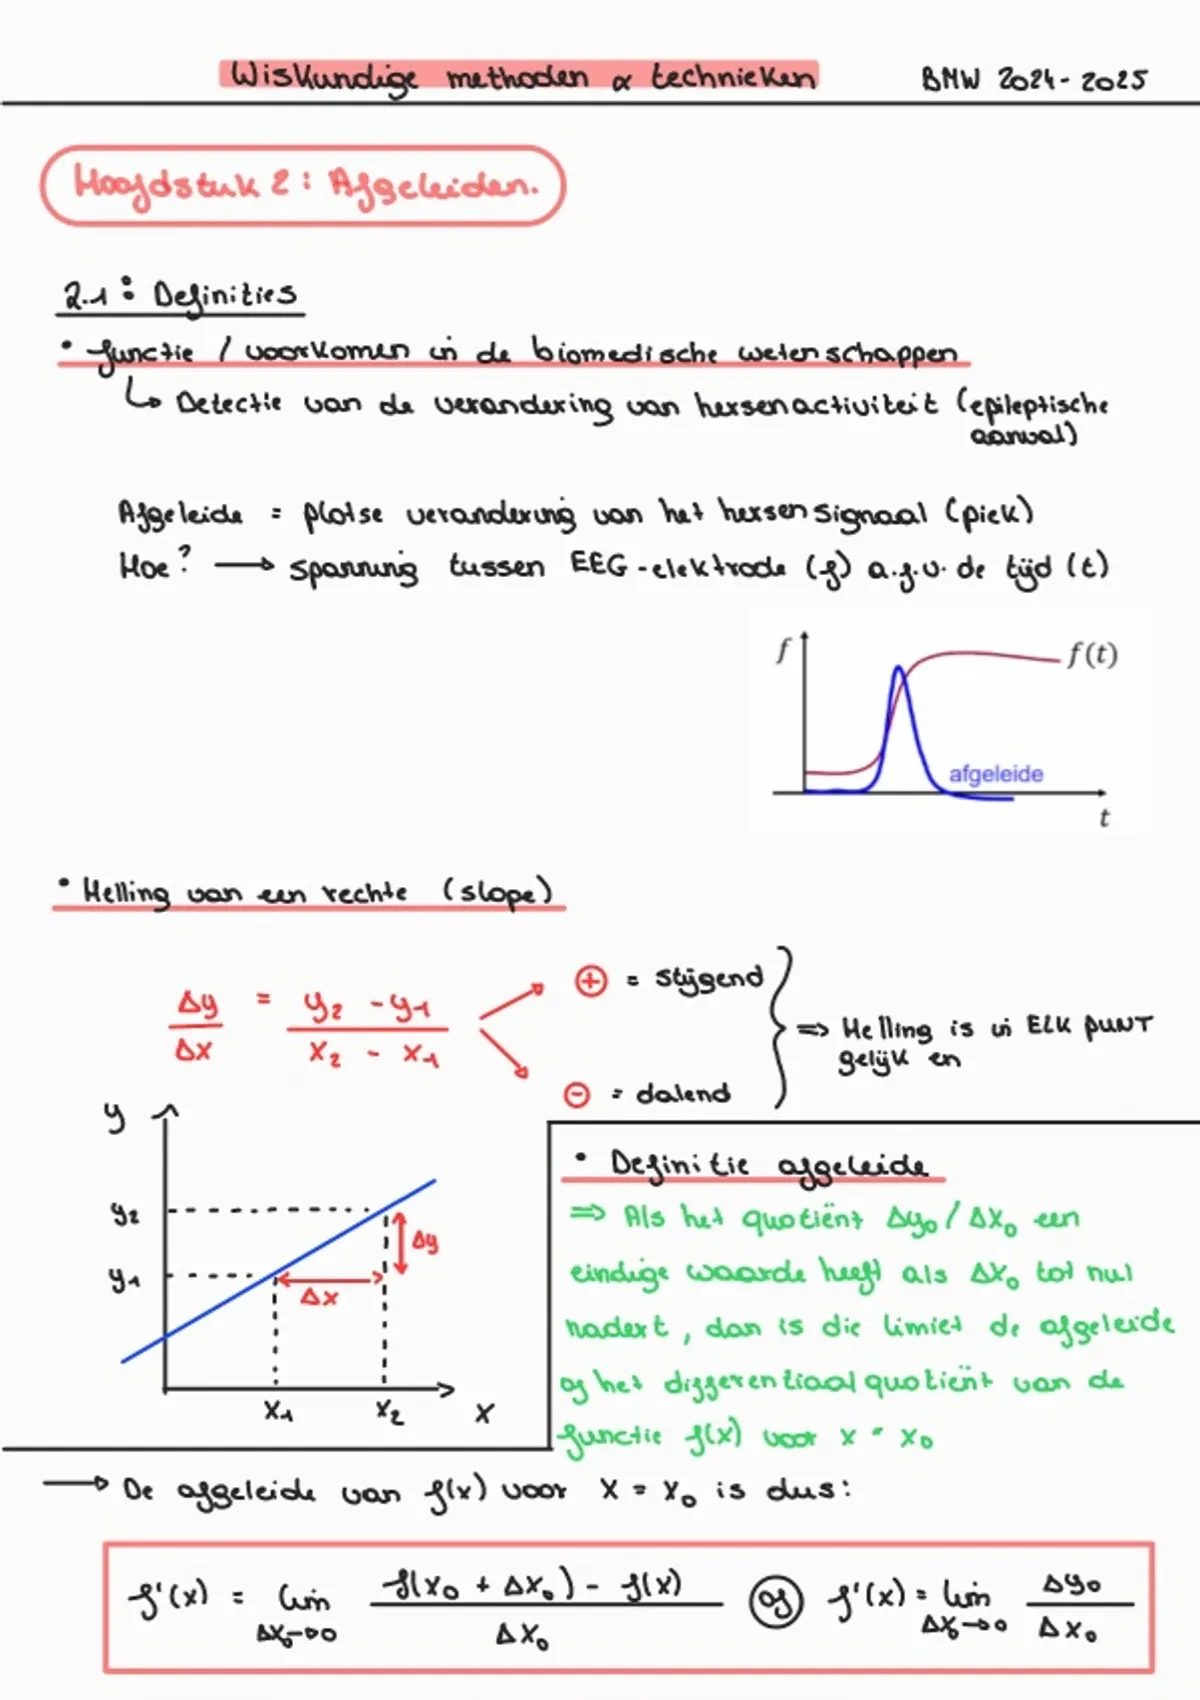 Wiskundige methoden & technieken BMW 2024-2025
Hoofdstuk 2: Afgeleiden.
2.1: Definities
• functie / voorkomen in de biomedische wetenschappen
↳ Detectie van de verandering van hersenactiviteit (epileptische
aanval)
Afgeleide = plotse verandering van het hersensignaal (piek)
Hoe? → spanning tussen EEG-elektrode (f) a.f.v. de tijd (t)
f
f(t)
afgeleide
t
• Helling van een rechte (slope)
Δy/Δx = y₂ - y₁ / x₂ - x₁
⊕ = stijgend
⇒ Helling is in ELK PUNT
gelijk en
⊖ = dalend
y
y₂
y₁
Δy
Δx
x₁ x₂ x
• Definitie afgeleide
⇒ Als het quotiënt Δy₀/Δx₀ een
eindige waarde heeft als Δx₀ tot nul
nadert, dan is die limiet de afgeleide
of het differentiaalquotiënt van de
functie f(x) voor x = x₀
→ De afgeleide van f(x) voor x = x₀ is dus:
f'(x) = lim Δx₀→0 f(x₀ + Δx₀) - f(x) / Δx₀ of f'(x) = lim Δx₀→0 Δy₀ / Δx₀